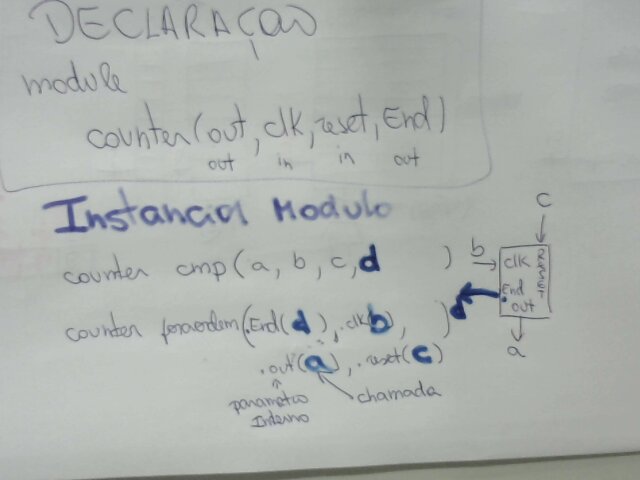 DECLARAÇÃO
module
counter(out, clk, reset, End)
out in in out
Instancia Modulo
counter cmp(a, b, c, d)
counter foraordem(.End(d), .clk(b),
.out(a), .reset(c))
parametro
Interno
chamada
c
b
clk
reset
End
out
d
a